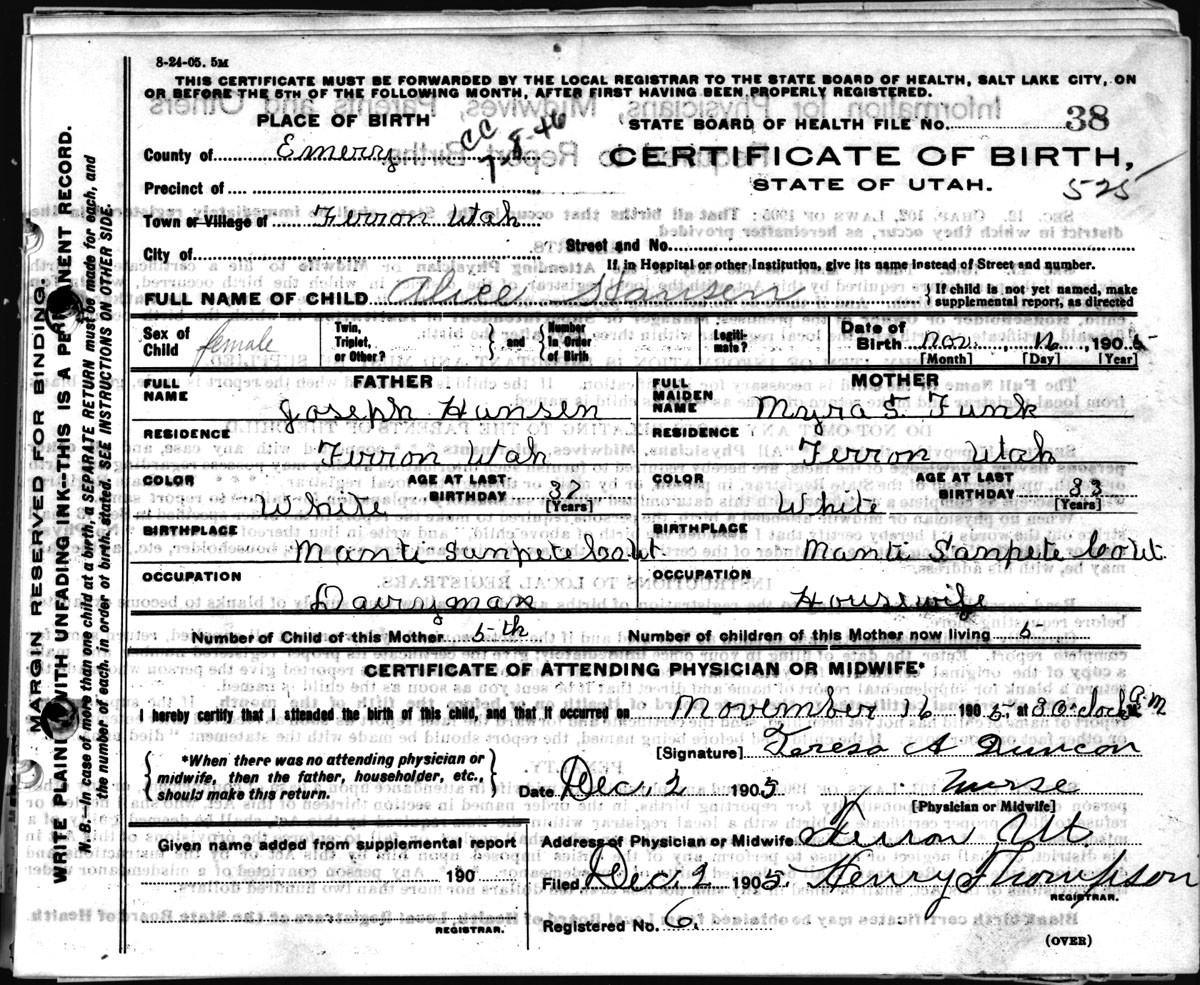 8-24-05. 5M
THIS CERTIFICATE MUST BE FORWARDED BY THE LOCAL REGISTRAR TO THE STATE BOARD OF HEALTH, SALT LAKE CITY, ON
OR BEFORE THE 5TH OF THE FOLLOWING MONTH, AFTER FIRST HAVING BEEN PROPERLY REGISTERED.
PLACE OF BIRTH
STATE BOARD OF HEALTH FILE No. 38
County of Emery
CC
7-8-46
CERTIFICATE OF BIRTH,
STATE OF UTAH.
525
Precinct of
Town or Village of Ferron Utah
City of
Street and No.
If in Hospital or other Institution, give its name instead of Street and number.
FULL NAME OF CHILD Alice Hansen { If child is not yet named, make supplemental report, as directed
Sex of Child female
Twin, Triplet, or Other? } and { Number in Order of Birth
Legiti-mate?
Date of Birth Nov 16, 1905
[Month] [Day] [Year]
FATHER
MOTHER
FULL NAME Joseph Hansen
FULL MAIDEN NAME Myra S. Funk
RESIDENCE Ferron Utah
RESIDENCE Ferron Utah
COLOR White AGE AT LAST BIRTHDAY 37 [Years]
COLOR White AGE AT LAST BIRTHDAY 33 [Years]
BIRTHPLACE Manti Sanpete Co Ut.
BIRTHPLACE Manti Sanpete Co Ut.
OCCUPATION Dairyman
OCCUPATION Housewife
Number of Child of this Mother 5-th
Number of children of this Mother now living 5
CERTIFICATE OF ATTENDING PHYSICIAN OR MIDWIFE*
I hereby certify that I attended the birth of this child, and that it occurred on November 16 1905. at 3 O.clock a M
[Signature] Teresa A Duncon
*When there was no attending physician or
midwife, then the father, householder, etc.,
should make this return.
Date Dec, 12 1905 nurse
[Physician or Midwife]
Given name added from supplemental report
190
REGISTRAR.
Address of Physician or Midwife Ferron Ut.
Filed Dec 12 1905 Henry Thompson
REGISTRAR.
Registered No. 6.
(OVER)
MARGIN RESERVED FOR BINDING
WRITE PLAINLY WITH UNFADING INK--THIS IS A PERMANENT RECORD.
N. B.—In case of more than one child at a birth, a SEPARATE RETURN must be made for each, and
the number of each, in order of birth, stated. SEE INSTRUCTIONS ON OTHER SIDE.